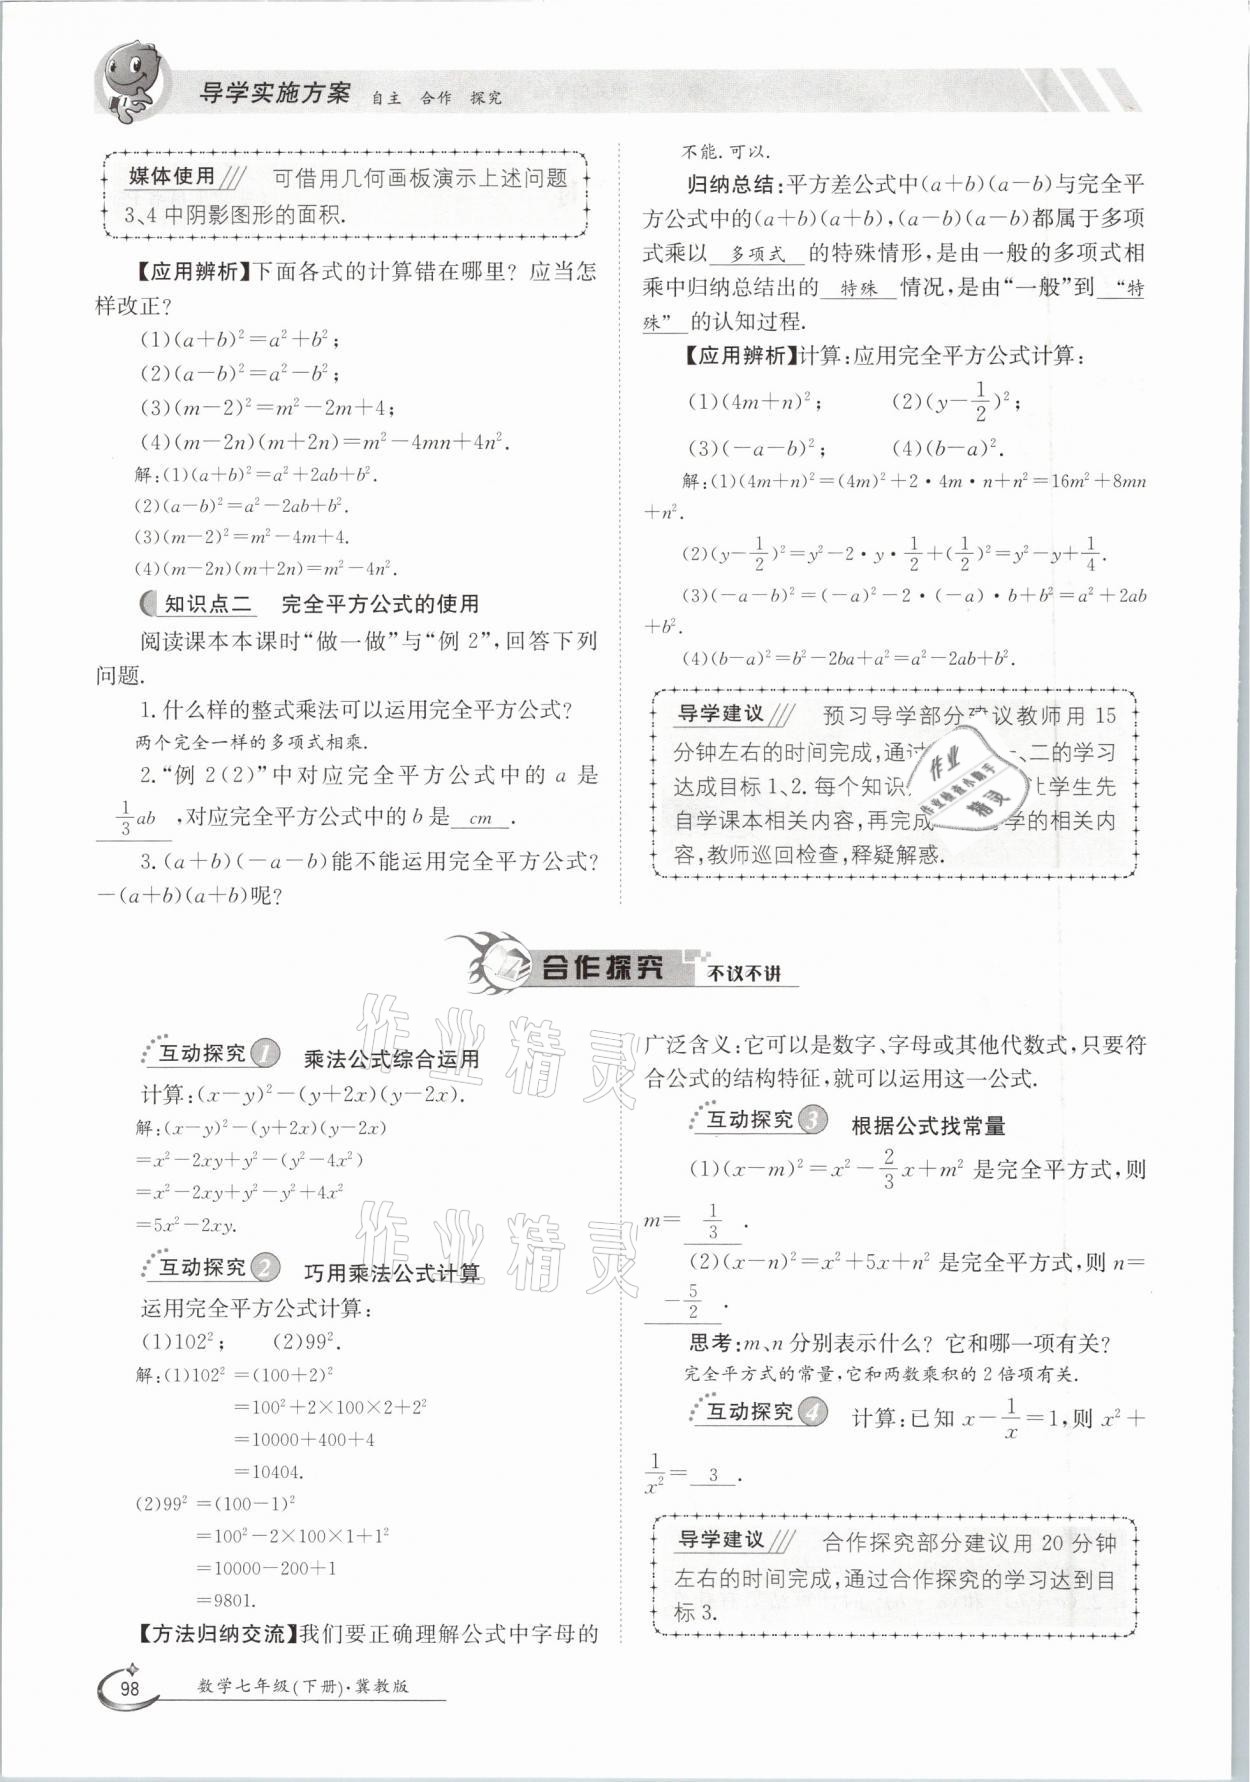 导学实施方案 自主 合作 探究
媒体使用 可借用几何画板演示上述问题
3、4中阴影图形的面积.
【应用辨析】下面各式的计算错在哪里？应当怎
样改正？
(1)(a+b)²=a²+b²；
(2)(a－b)²=a²－b²；
(3)(m－2)²=m²－2m+4；
(4)(m－2n)(m+2n)=m²－4mn+4n².
解:(1)(a+b)²=a²+2ab+b².
(2)(a－b)²=a²－2ab+b².
(3)(m－2)²=m²－4m+4.
(4)(m－2n)(m+2n)=m²－4n².
知识点二 完全平方公式的使用
阅读课本本课时“做一做”与“例2”，回答下列
问题.
1.什么样的整式乘法可以运用完全平方公式？
两个完全一样的多项式相乘.
2.“例2(2)”中对应完全平方公式中的a是
1/3 ab ，对应完全平方公式中的b是 cm .
3.(a+b)(－a－b)能不能运用完全平方公式？
－(a+b)(a+b)呢？
不能.可以.
归纳总结:平方差公式中(a+b)(a－b)与完全平
方公式中的(a+b)(a+b)，(a－b)(a－b)都属于多项
式乘以 多项式 的特殊情形，是由一般的多项式相
乘中归纳总结出的 特殊 情况，是由“一般”到 “特
殊” 的认知过程.
【应用辨析】计算:应用完全平方公式计算:
(1)(4m+n)²； (2)(y－1/2)²；
(3)(－a－b)²； (4)(b－a)².
解:(1)(4m+n)²=(4m)²+2·4m·n+n²=16m²+8mn
+n².
(2)(y－1/2)²=y²－2·y·1/2+(1/2)²=y²－y+1/4.
(3)(－a－b)²=(－a)²－2·(－a)·b+b²=a²+2ab
+b².
(4)(b－a)²=b²－2ba+a²=a²－2ab+b².
导学建议 预习导学部分建议教师用15
分钟左右的时间完成，通过 、二的学习
达成目标1、2.每个知识 让学生先
自学课本相关内容，再完成 学的相关内
容，教师巡回检查，释疑解惑.
作业
作业检查小助手
精灵
合作探究 不议不讲
互动探究1 乘法公式综合运用
计算:(x－y)²－(y+2x)(y－2x).
解:(x－y)²－(y+2x)(y－2x)
=x²－2xy+y²－(y²－4x²)
=x²－2xy+y²－y²+4x²
=5x²－2xy.
互动探究2 巧用乘法公式计算
运用完全平方公式计算:
(1)102²； (2)99².
解:(1)102²=(100+2)²
=100²+2×100×2+2²
=10000+400+4
=10404.
(2)99²=(100－1)²
=100²－2×100×1+1²
=10000－200+1
=9801.
【方法归纳交流】我们要正确理解公式中字母的
广泛含义:它可以是数字、字母或其他代数式，只要符
合公式的结构特征，就可以运用这一公式.
互动探究3 根据公式找常量
(1)(x－m)²=x²－2/3x+m²是完全平方式，则
m= 1/3 .
(2)(x－n)²=x²+5x+n²是完全平方式，则n=
－5/2 .
思考:m、n分别表示什么？它和哪一项有关？
完全平方式的常量，它和两数乘积的2倍项有关.
互动探究4 计算:已知x－1/x=1，则x²+
1/x²= 3 .
导学建议 合作探究部分建议用20分钟
左右的时间完成，通过合作探究的学习达到目
标3.
作业精灵
作业精灵
98 数学七年级(下册)·冀教版